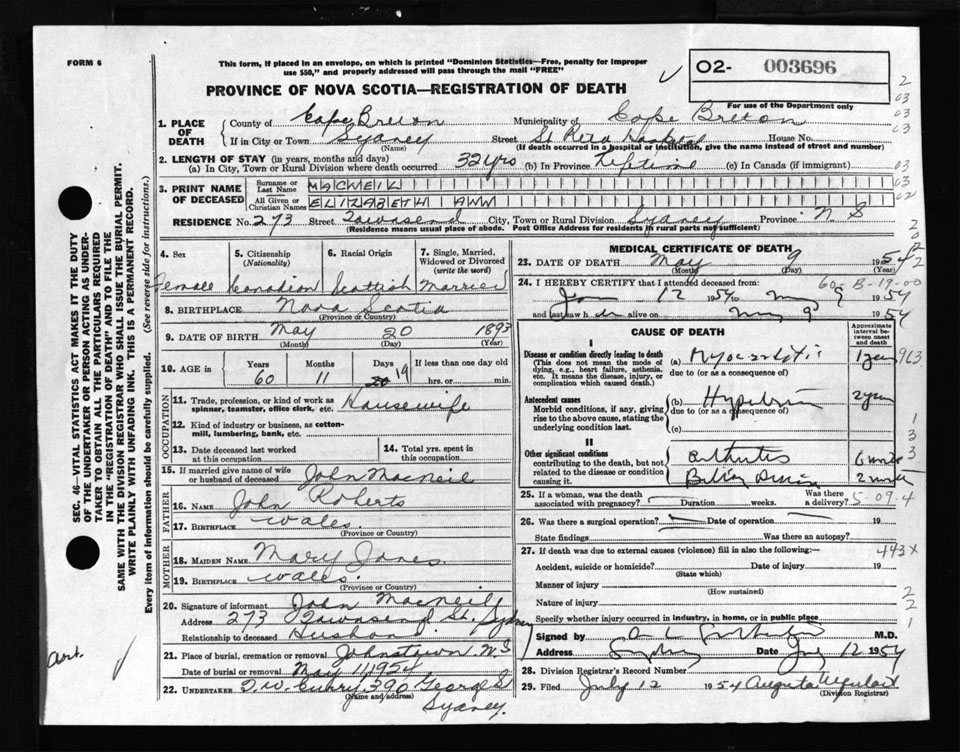 FORM 6
This form, if placed in an envelope, on which is printed "Dominion Statistics—Free, penalty for improper
use $50," and properly addressed will pass through the mail "FREE"
O2- 003696
PROVINCE OF NOVA SCOTIA—REGISTRATION OF DEATH
For use of the Department only
1. PLACE OF DEATH
County of Cape Breton Municipality of Cape Breton
If in City or Town Sydney Street St Rita Hospital House No.
(Name) (If death occurred in a hospital or institution, give the name instead of street and number)
2. LENGTH OF STAY (in years, months and days)
(a) In City, Town or Rural Division where death occurred 32 yrs (b) In Province Lifetime (c) In Canada (if immigrant)
3. PRINT NAME OF DECEASED
Surname or Last Name MACNEIL
All Given or Christian Names ELIZABETH ANN
RESIDENCE No. 273 Street Townsend City, Town or Rural Division Sydney Province N S
(Residence means usual place of abode. Post Office Address for residents in rural parts not sufficient)
4. Sex
Female
5. Citizenship (Nationality)
Canadian
6. Racial Origin
Scottish
7. Single, Married, Widowed or Divorced (write the word)
Married
8. BIRTHPLACE Nova Scotia
(Province or Country)
9. DATE OF BIRTH May 20 1893
(Month) (Day) (Year)
10. AGE in Years 60 Months 11 Days 20 19 If less than one day old
hrs. or min.
OCCUPATION
11. Trade, profession, or kind of work as spinner, teamster, office clerk, etc. Housewife
12. Kind of industry or business, as cotton-mill, lumbering, bank, etc.
13. Date deceased last worked at this occupation
14. Total yrs. spent in this occupation
15. If married give name of wife or husband of deceased John MacNeil
FATHER
16. NAME John Roberts
17. BIRTHPLACE Wales
(Province or Country)
MOTHER
18. MAIDEN NAME Mary Jones
19. BIRTHPLACE Wales
(Province or Country)
20. Signature of informant John MacNeil
Address 273 Townsend St. Sydney
Relationship to deceased Husband
21. Place of burial, cremation or removal Johnstown N.S
Date of burial or removal May 11, 1954
22. UNDERTAKER 390 George St
(Name and address)
Sydney.
MEDICAL CERTIFICATE OF DEATH
23. DATE OF DEATH May 9 1954
(Month) (Day) (Year)
24. I HEREBY CERTIFY that I attended deceased from
Jan 12 1954 to May 9 1954
and last saw h er alive on May 9 1954
CAUSE OF DEATH
Approximate interval between onset and death
I
Disease or condition directly leading to death
(This does not mean the mode of dying, e.g., heart failure, asthenia, etc. It means the disease, injury, or complication which caused death.)
(a) Myocarditis 1 year
due to (or as a consequence of)
Antecedent causes
Morbid conditions, if any, giving rise to the above cause, stating the underlying condition last.
(b) 2 years
due to (or as a consequence of)
(c)
II
Other significant conditions
contributing to the death, but not related to the disease or condition causing it.
Arthritis
25. If a woman, was the death associated with pregnancy? Duration weeks. Was there a delivery?
5-09.4
26. Was there a surgical operation? Date of operation 19
State findings Was there an autopsy?
27. If death was due to external causes (violence) fill in also the following:—
443X
Accident, suicide or homicide? Date of injury 19
(State which)
Manner of injury
(How sustained)
Nature of injury
Specify whether injury occurred in industry, in home, or in public place
Signed by M.D.
Address Sydney Date July 12 1954
28. Division Registrar's Record Number
29. Filed July 12 1954 Augusta
(Division Registrar)
SEC. 46—VITAL STATISTICS ACT MAKES IT THE DUTY
OF THE UNDERTAKER OR PERSON ACTING AS UNDER-
TAKER TO OBTAIN ALL THE PARTICULARS REQUIRED
IN THE "REGISTRATION OF DEATH" AND TO FILE THE
SAME WITH THE DIVISION REGISTRAR WHO SHALL ISSUE THE BURIAL PERMIT.
WRITE PLAINLY WITH UNFADING INK. THIS IS A PERMANENT RECORD.
Every item of information should be carefully supplied. (See reverse side for instructions.)